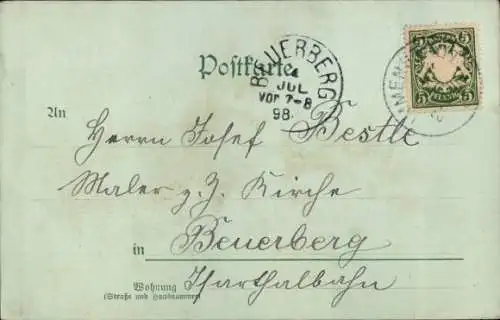 Postkarte
BEUERBERG
4
JUL
VOR 7-8
98.
5 5
5 PFENNIG 5
An
Herrn Josef Bestle
Maler z. Z. Kirche
in Beuerberg
Isarthalbahn
Wohnung
(Straße und Hausnummer)